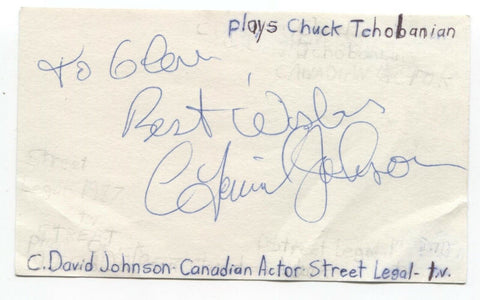 plays Chuck Tchobanian
To Glenn
Best Wishes
C David Johnson
Street
Legal 1987
C. David Johnson - Canadian Actor Street Legal - t.v.